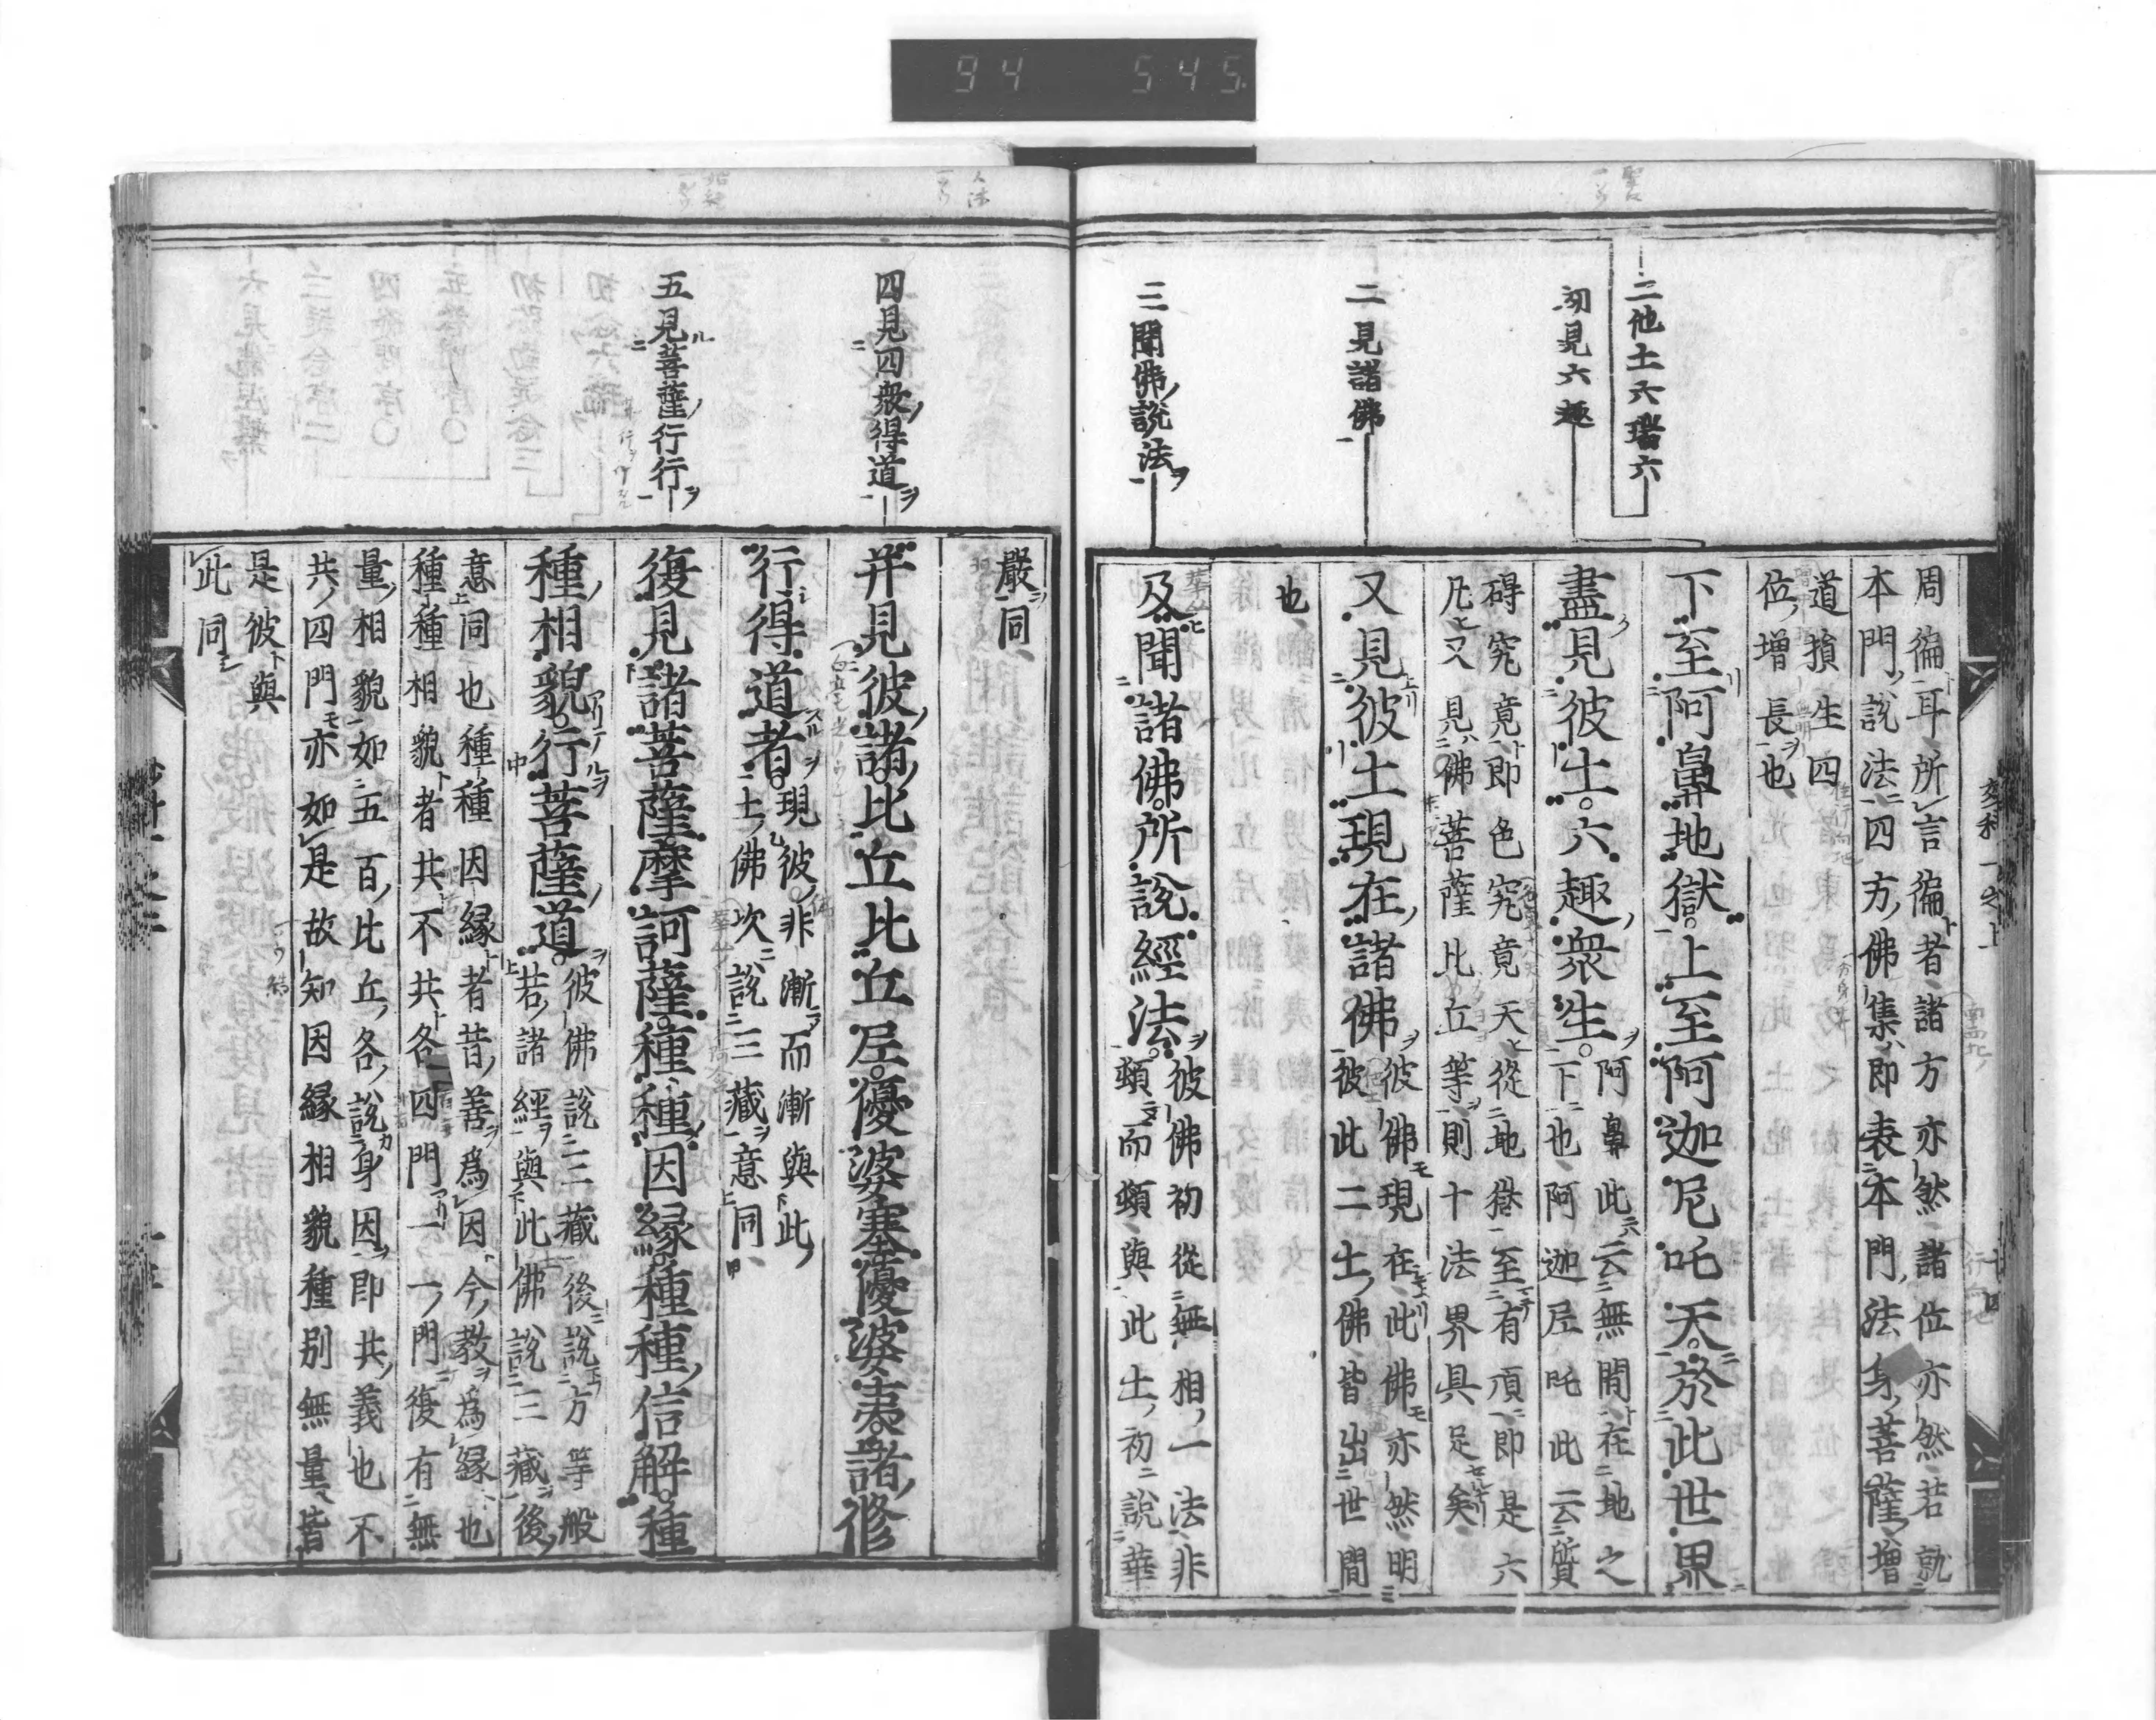 94 545
二他土六瑞六
初見六趣
二見諸佛
三聞佛說法
周徧耳所言徧者諸方亦然諸位亦然若就
本門說法四方佛集即表本門法身菩薩增
道損生四
位增長也
下至阿鼻地獄上至阿迦尼吒天於此世界
盡見彼土六趣衆生
阿鼻此云無間在地之
下也阿迦尼吒此云質
碍究竟即色究竟天從地獄至有頂即是六
凡又見佛菩薩比丘等則十法界具足矣
又見彼土現在諸佛
彼佛現在此佛亦然明
彼此二土佛皆出世間
也
及聞諸佛所說經法
彼佛初從無相一法非
頓而頓與此土初說華
四見四衆得道
五見菩薩行行
嚴同
并見彼諸比丘比丘尼優婆塞優婆夷諸修
行得道者
現彼非漸而漸與此
土佛次說三藏意同
復見諸菩薩摩訶薩種種因緣種種信解種
種相貌行菩薩道
彼佛說三藏後說方等般
若諸經與此佛說三藏後
意同也種種因緣者昔善爲因今教爲緣也
種種相貌者共不共各四門一一門復有無
量相貌如五百比丘各說身因即共義也不
共四門亦如是故知因緣相貌種別無量皆
是彼與
此同